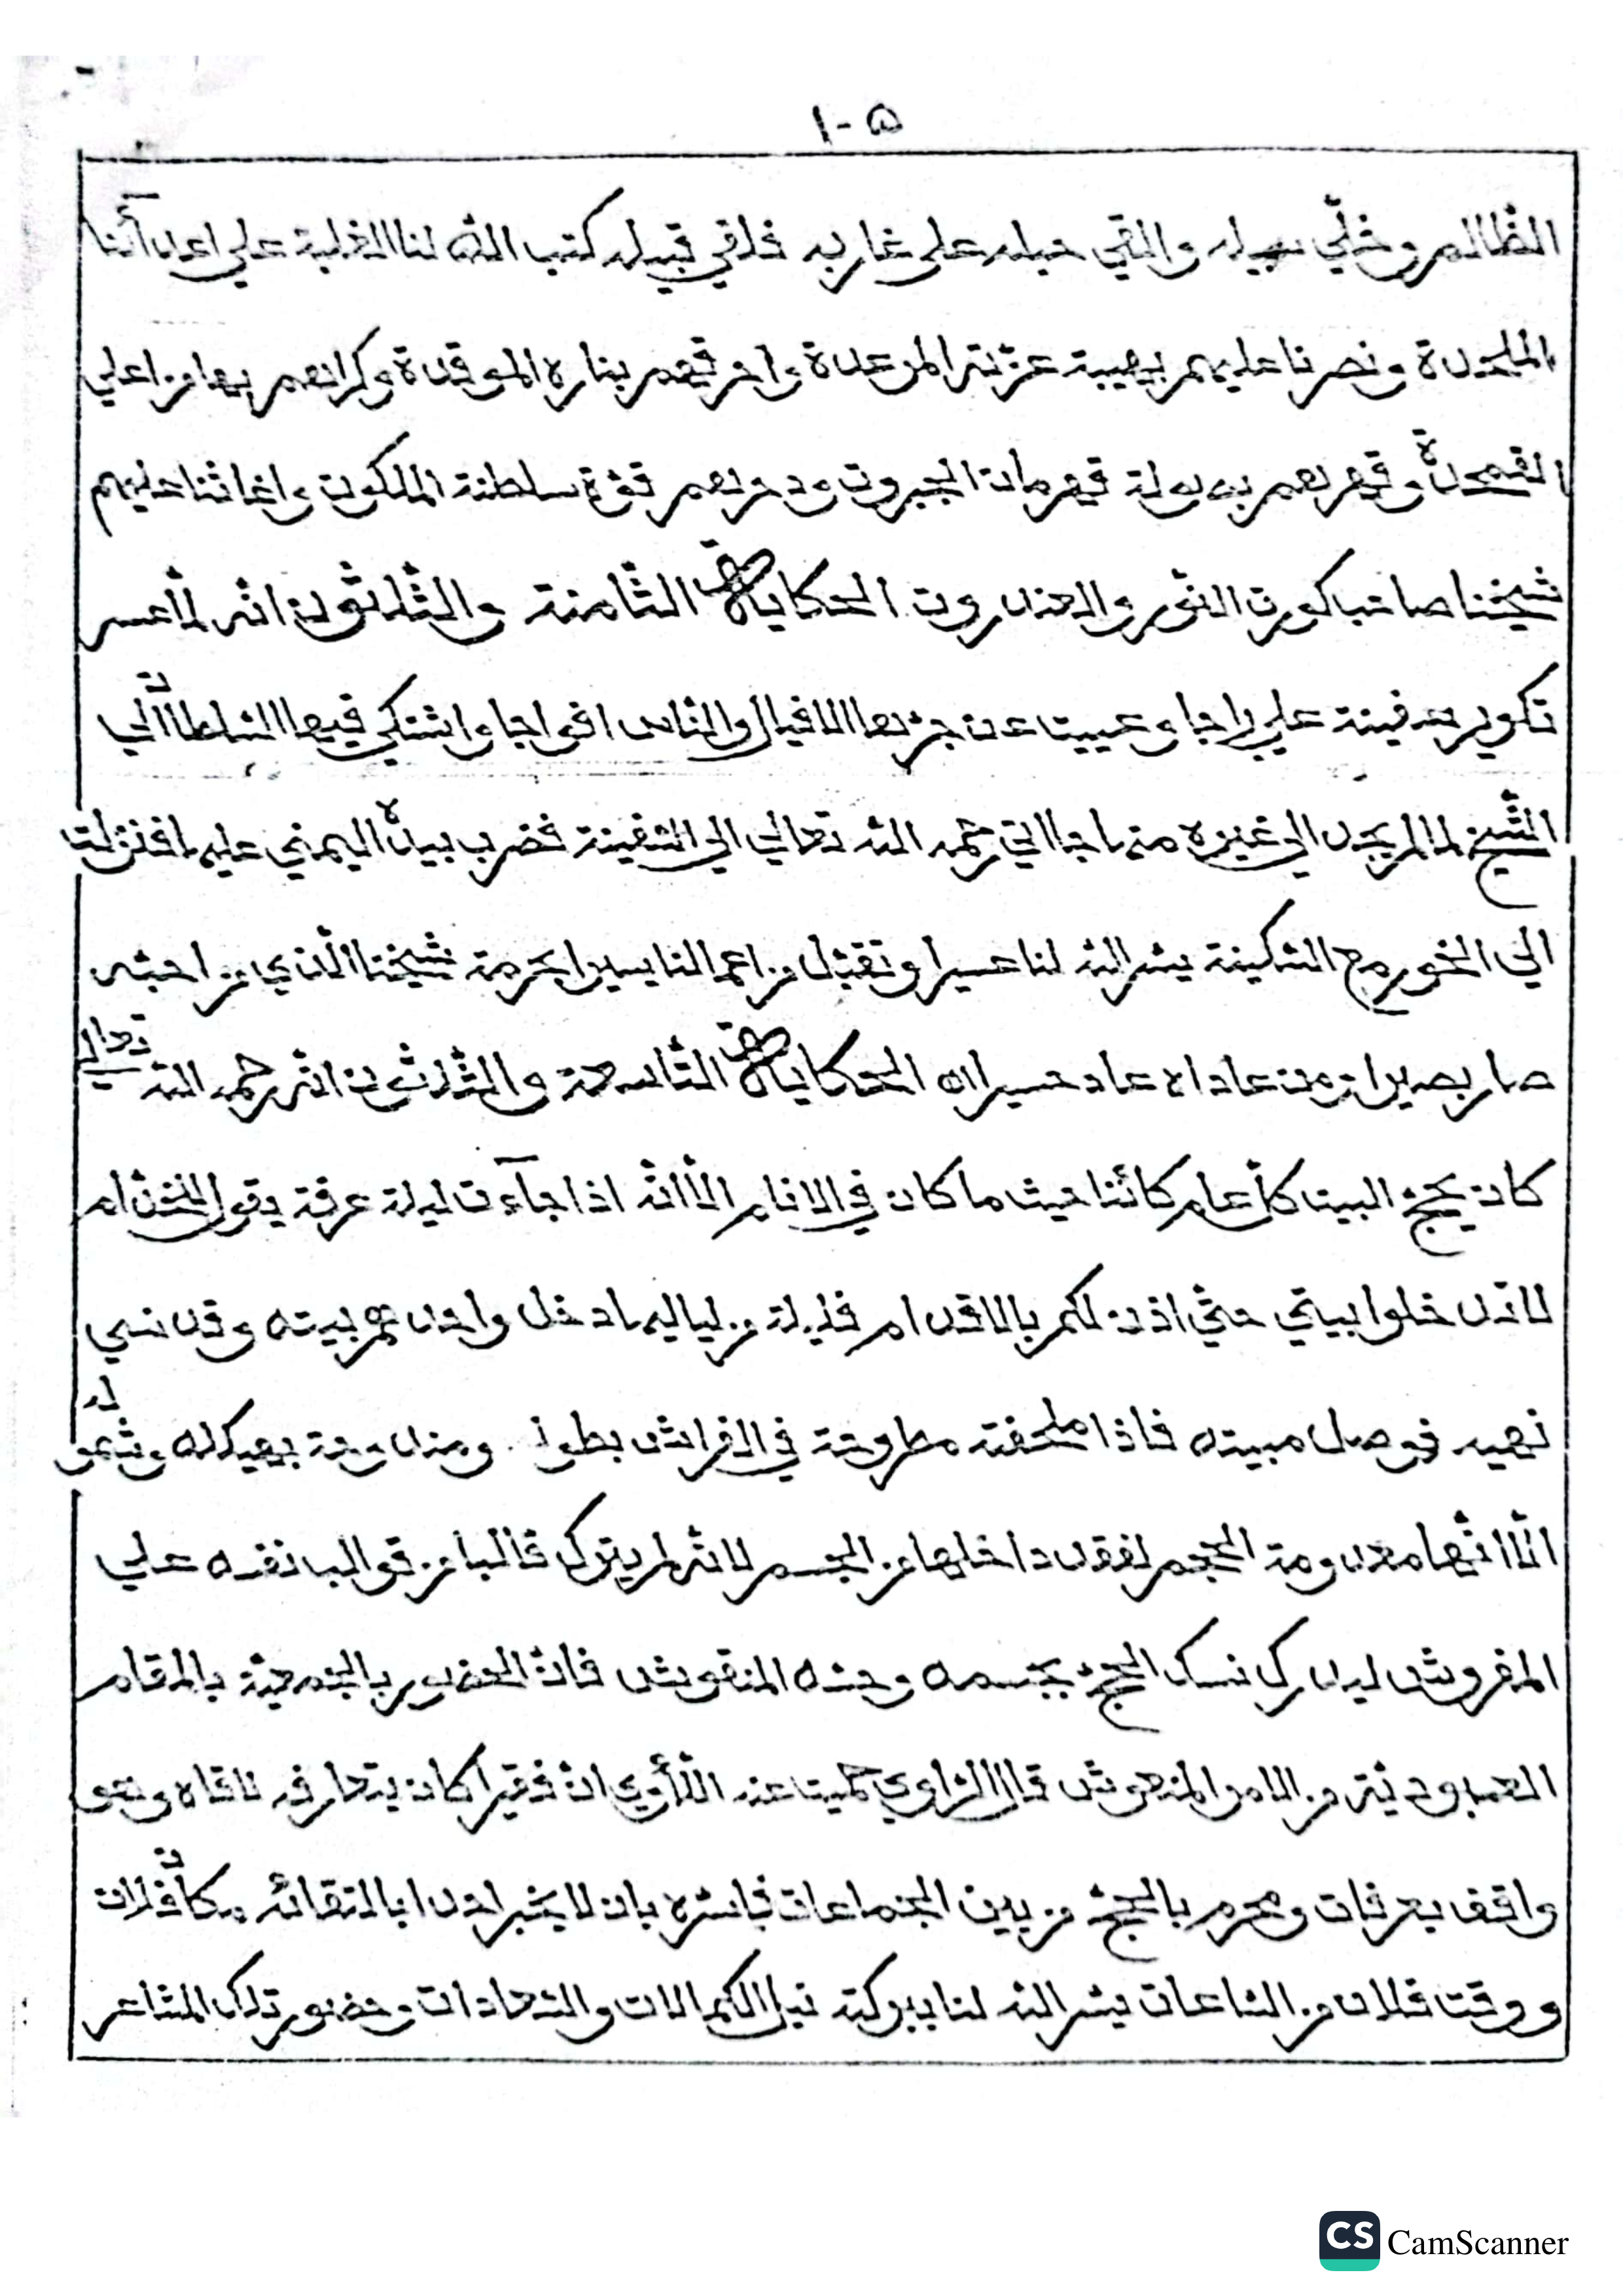 ١٠٥
الظالم وخلّي سبيله والقي حبله على غاربه فلاقي قبيله كتب الله لنا الغلبة علي اعدآئنا
الملحدة ونصرنا عليهم بهيبة عزّته المرعدة واحرقهم بناره الموقدة وكرّبهم بها من اعلي
القمحدة وقهرهم بدولة قهرمان الجبروت ودمرهم قوّة سلطنة الملكوت واغاثنا عليهم
شيخنا صاحب كورت النّور والعندروت الحكاية الثّامنة والثّلاثون انّه لمّا عسر
تكوير سفينة علي راجا وعييت عن جرّها الافيال والنّاس افواجا واشتكي فيها السّلطان الي
الشّيخ لما لم يجد الى غيره منهاجا اتي رحمه اللّه تعالي الي السّفينة فضرب بيده اليمني عليها فنزلت
الي الخور مع السّكينة يسّر اللّه لنا عسيرا وتقبّل من اعمالنا يسيرا بحرمة شيخنا الّذي من احبّه
صار بصيرا ومن عاداه عاد حسيرا اه الحكاية التّاسعة والثّلاثون انّه رحمه اللّه تعالي
كان يحجّ البيت كلّ عام كائنا حيث ما كان في الانام الّا انّه اذا جآءت ليلة عرفة يقول للخدّام
لا تدخلوا بيتي حتّي اذن لكم بالاقدام فليلة من لياليها دخل واحدهم بيته وقد نسي
نهيه فوصل مبيته فاذا ملحفته مطروحة في الفراش بطوله وممدوحة بهيكله وشموله
الّا انّها معدومة الحجم لفقد داخلها من الجسم لانّه لم يترك قالبا من قوالب نفسه علي
المفروش ليدرك نسك الحجّ بجسمه وحسّه المنقوش فانّ الحضور بالجمعيّة بالمقام
العبوديّة من الامر المنعوش قال الرّاوي حميت عنه اللّأوي انّ فقيرا كان يتعارفه لاقاه وهو
واقف بعرفات ومحرم بالحجّ من بين الجماعات فباشره بان لا يخبر احدا بالتقائه مكان فلان
ووقت فلان من السّاعات يسّر اللّه لنا ببركته نيل الكمالات والسّعادات وحضور تلك المشاعر
CS CamScanner